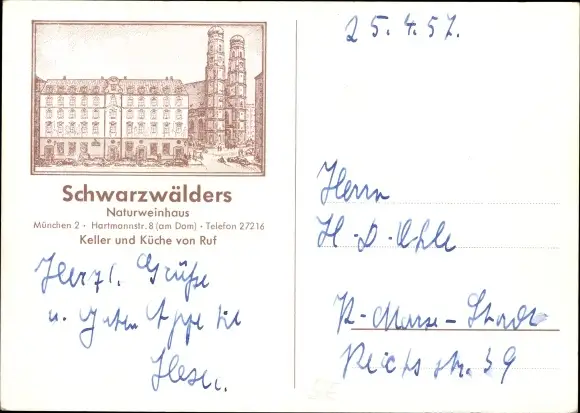 Schwarzwälders
Naturweinhaus
München 2 · Hartmannstr. 8 (am Dom) · Telefon 27216
Keller und Küche von Ruf
Herzl. Grüße
u. guten Appetit
25.4.57.
Herrn
H.D.
K-Marx-Stadt
Reichsstr. 39